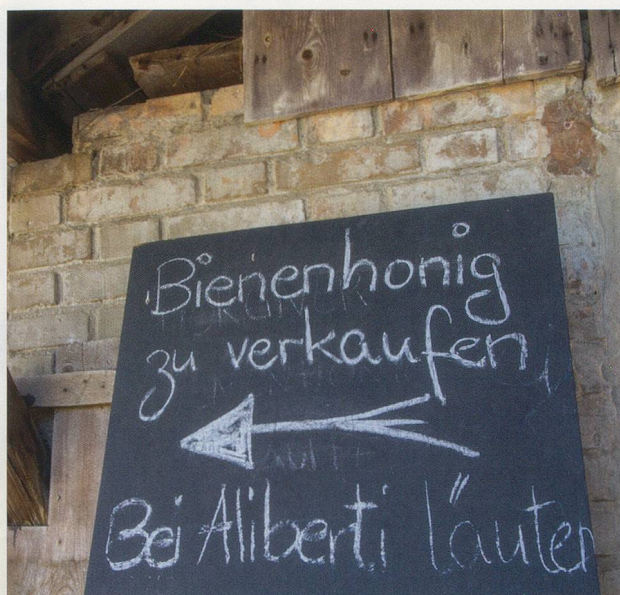 Bienenhonig
zu verkaufen
Bei Aliberti läuten